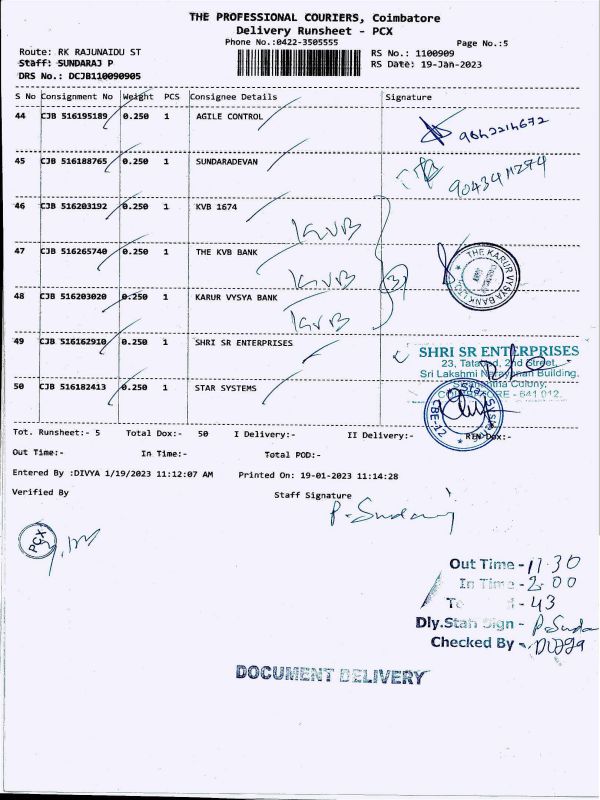 THE PROFESSIONAL COURIERS, Coimbatore
Delivery Runsheet - PCX
Phone No.:0422-3505555 Page No.:5
Route: RK RAJUNAIDU ST RS No.: 1100909
Staff: SUNDARAJ P RS Date: 19-Jan-2023
DRS No.: DCJB110090905
S No Consignment No Weight PCS Consignee Details Signature
44 CJB 516195189 0.250 1 AGILE CONTROL
45 CJB 516188765 0.250 1 SUNDARADEVAN
46 CJB 516203192 0.250 1 KVB 1674
KVB
47 CJB 516265740 0.250 1 THE KVB BANK
THE KARUR VYSYA BANK
KVB 3
48 CJB 516203020 0.250 1 KARUR VVSYA BANK
KVB
49 CJB 516162910 0.250 1 SHRI SR ENTERPRISES
SHRI SR ENTERPRISES
23, Tatabad, 2nd Street,
Sri Lakshmi Narayanan Building,
COIMBATORE - 641 012.
50 CJB 516182413 0.250 1 STAR SYSTEMS
CBE-12
Tot. Runsheet:- 5 Total Dox:- 50 I Delivery:- II Delivery:- RTN Dox:-
Out Time:- In Time:- Total POD:-
Entered By :DIVYA 1/19/2023 11:12:07 AM Printed On: 19-01-2023 11:14:28
Verified By Staff Signature
PCX
Out Time - 11.30
In Time - 2.00
- 43
Dly.Staff Sign - P.Sunda
Checked By - Divya
DOCUMENT DELIVERY